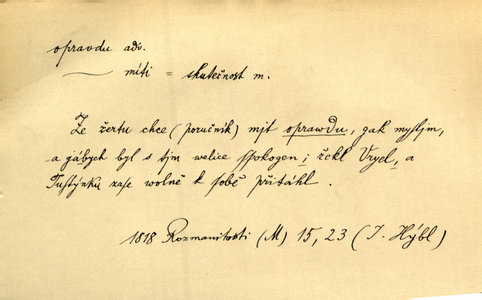 opravdu adv.
— míti = skutečnost m.
Ze žertu chce (poručník) mjt oprawdu, gak mysljm,
a gábych byl s tjm welice spokogen; řekl Uryel, a
Justýnku zase wolně k sobě přitáhl.
1818 Rozmanitosti (M) 15, 23 (J. Hýbl)